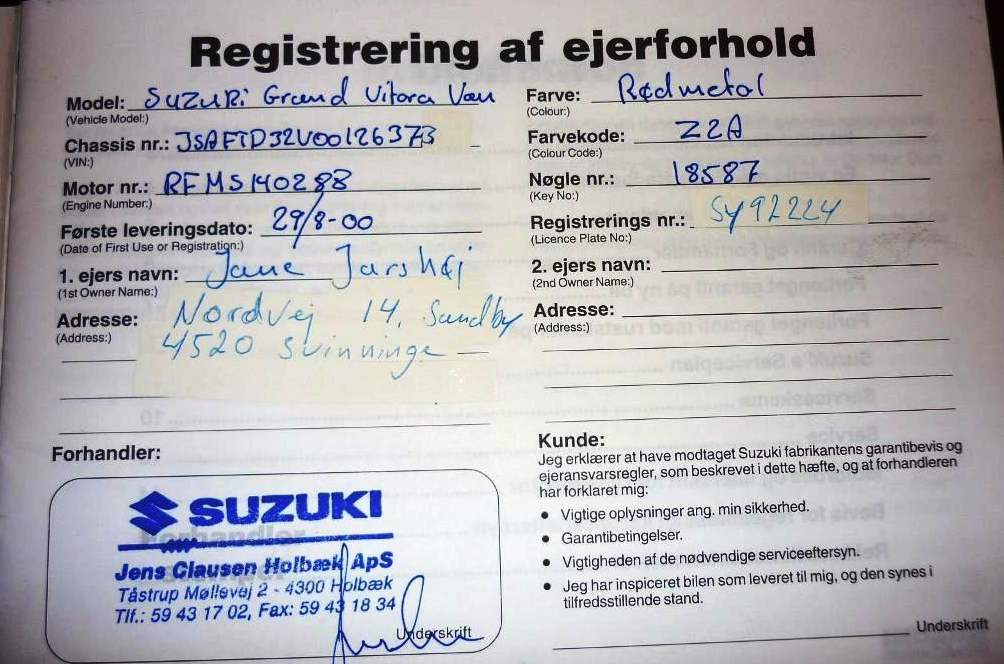 Registrering af ejerforhold
Model: Suzuki Grand Vitara Van
(Vehicle Model:)
Chassis nr.: JSAFTD32V00126373
(VIN:)
Motor nr.: RFMS140288
(Engine Number:)
Første leveringsdato: 29/8-00
(Date of First Use or Registration:)
1. ejers navn: Jane Jarshøj
(1st Owner Name:)
Adresse: Nordvej 14, Sandby
(Address:) 4520 Svinninge
Farve: Rødmetal
(Colour:)
Farvekode: Z2A
(Colour Code:)
Nøgle nr.: 18587
(Key No:)
Registrerings nr.: SY92224
(Licence Plate No:)
2. ejers navn:
(2nd Owner Name:)
Adresse:
(Address:)
Forhandler:
SUZUKI
Jens Clausen Holbæk ApS
Tåstrup Møllevej 2 - 4300 Holbæk
Tlf.: 59 43 17 02, Fax: 59 43 18 34
Underskrift
Kunde:
Jeg erklærer at have modtaget Suzuki fabrikantens garantibevis og
ejeransvarsregler, som beskrevet i dette hæfte, og at forhandleren
har forklaret mig:
• Vigtige oplysninger ang. min sikkerhed.
• Garantibetingelser.
• Vigtigheden af de nødvendige serviceeftersyn.
• Jeg har inspiceret bilen som leveret til mig, og den synes i
tilfredsstillende stand.
Underskrift